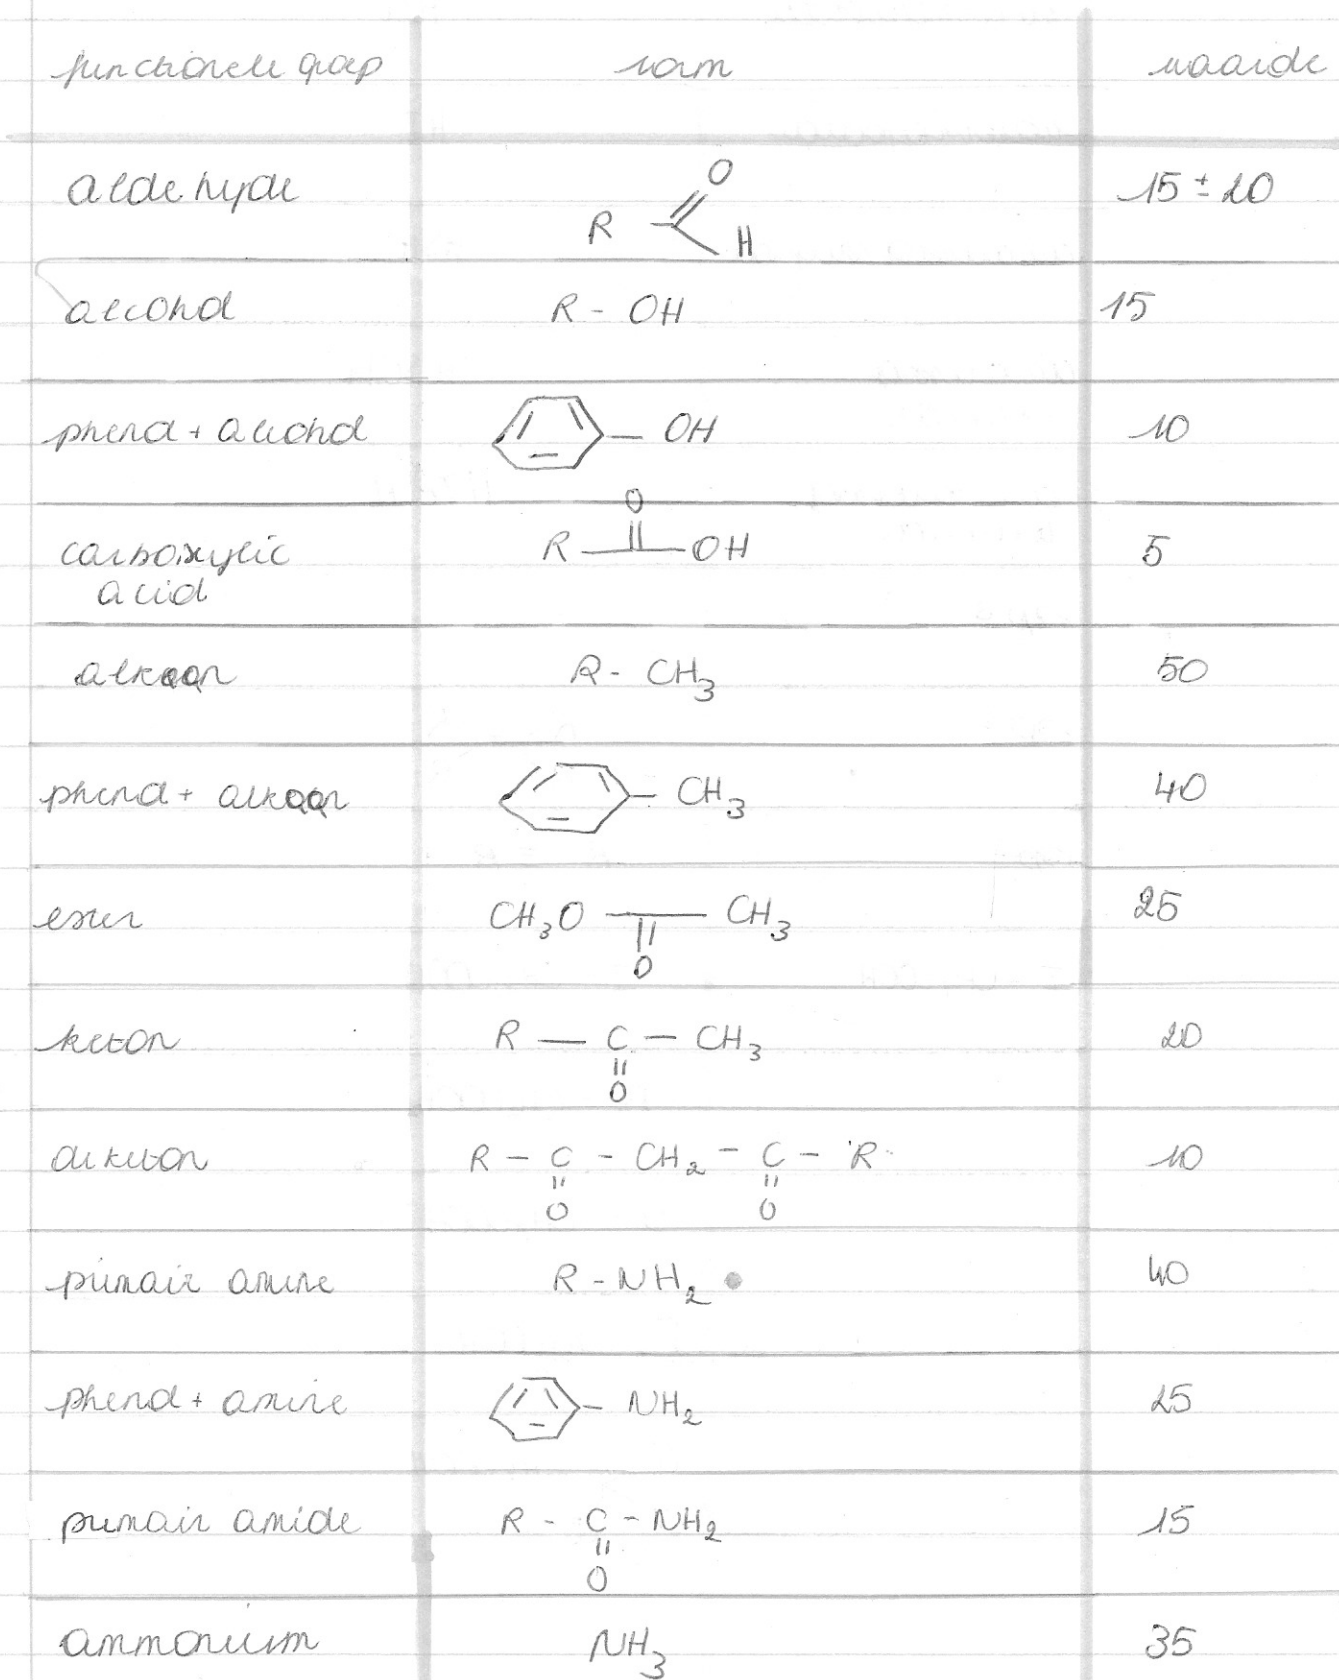 functionele groep vorm waarde
aldehyde R O H 15 ± 20
alcohol R - OH 15
phenol + alcohol - OH 10
carboxylic O R OH 5
acid
alkaan R - CH3 50
phenol + alkaan - CH3 40
ester CH3O CH3 25
O
keton R — C — CH3 20
O
diketon R - C - CH2 - C - R 10
O O
primair amine R - NH2 40
phenol + amine - NH2 25
primair amide R - C - NH2 15
O
ammonium NH3 35